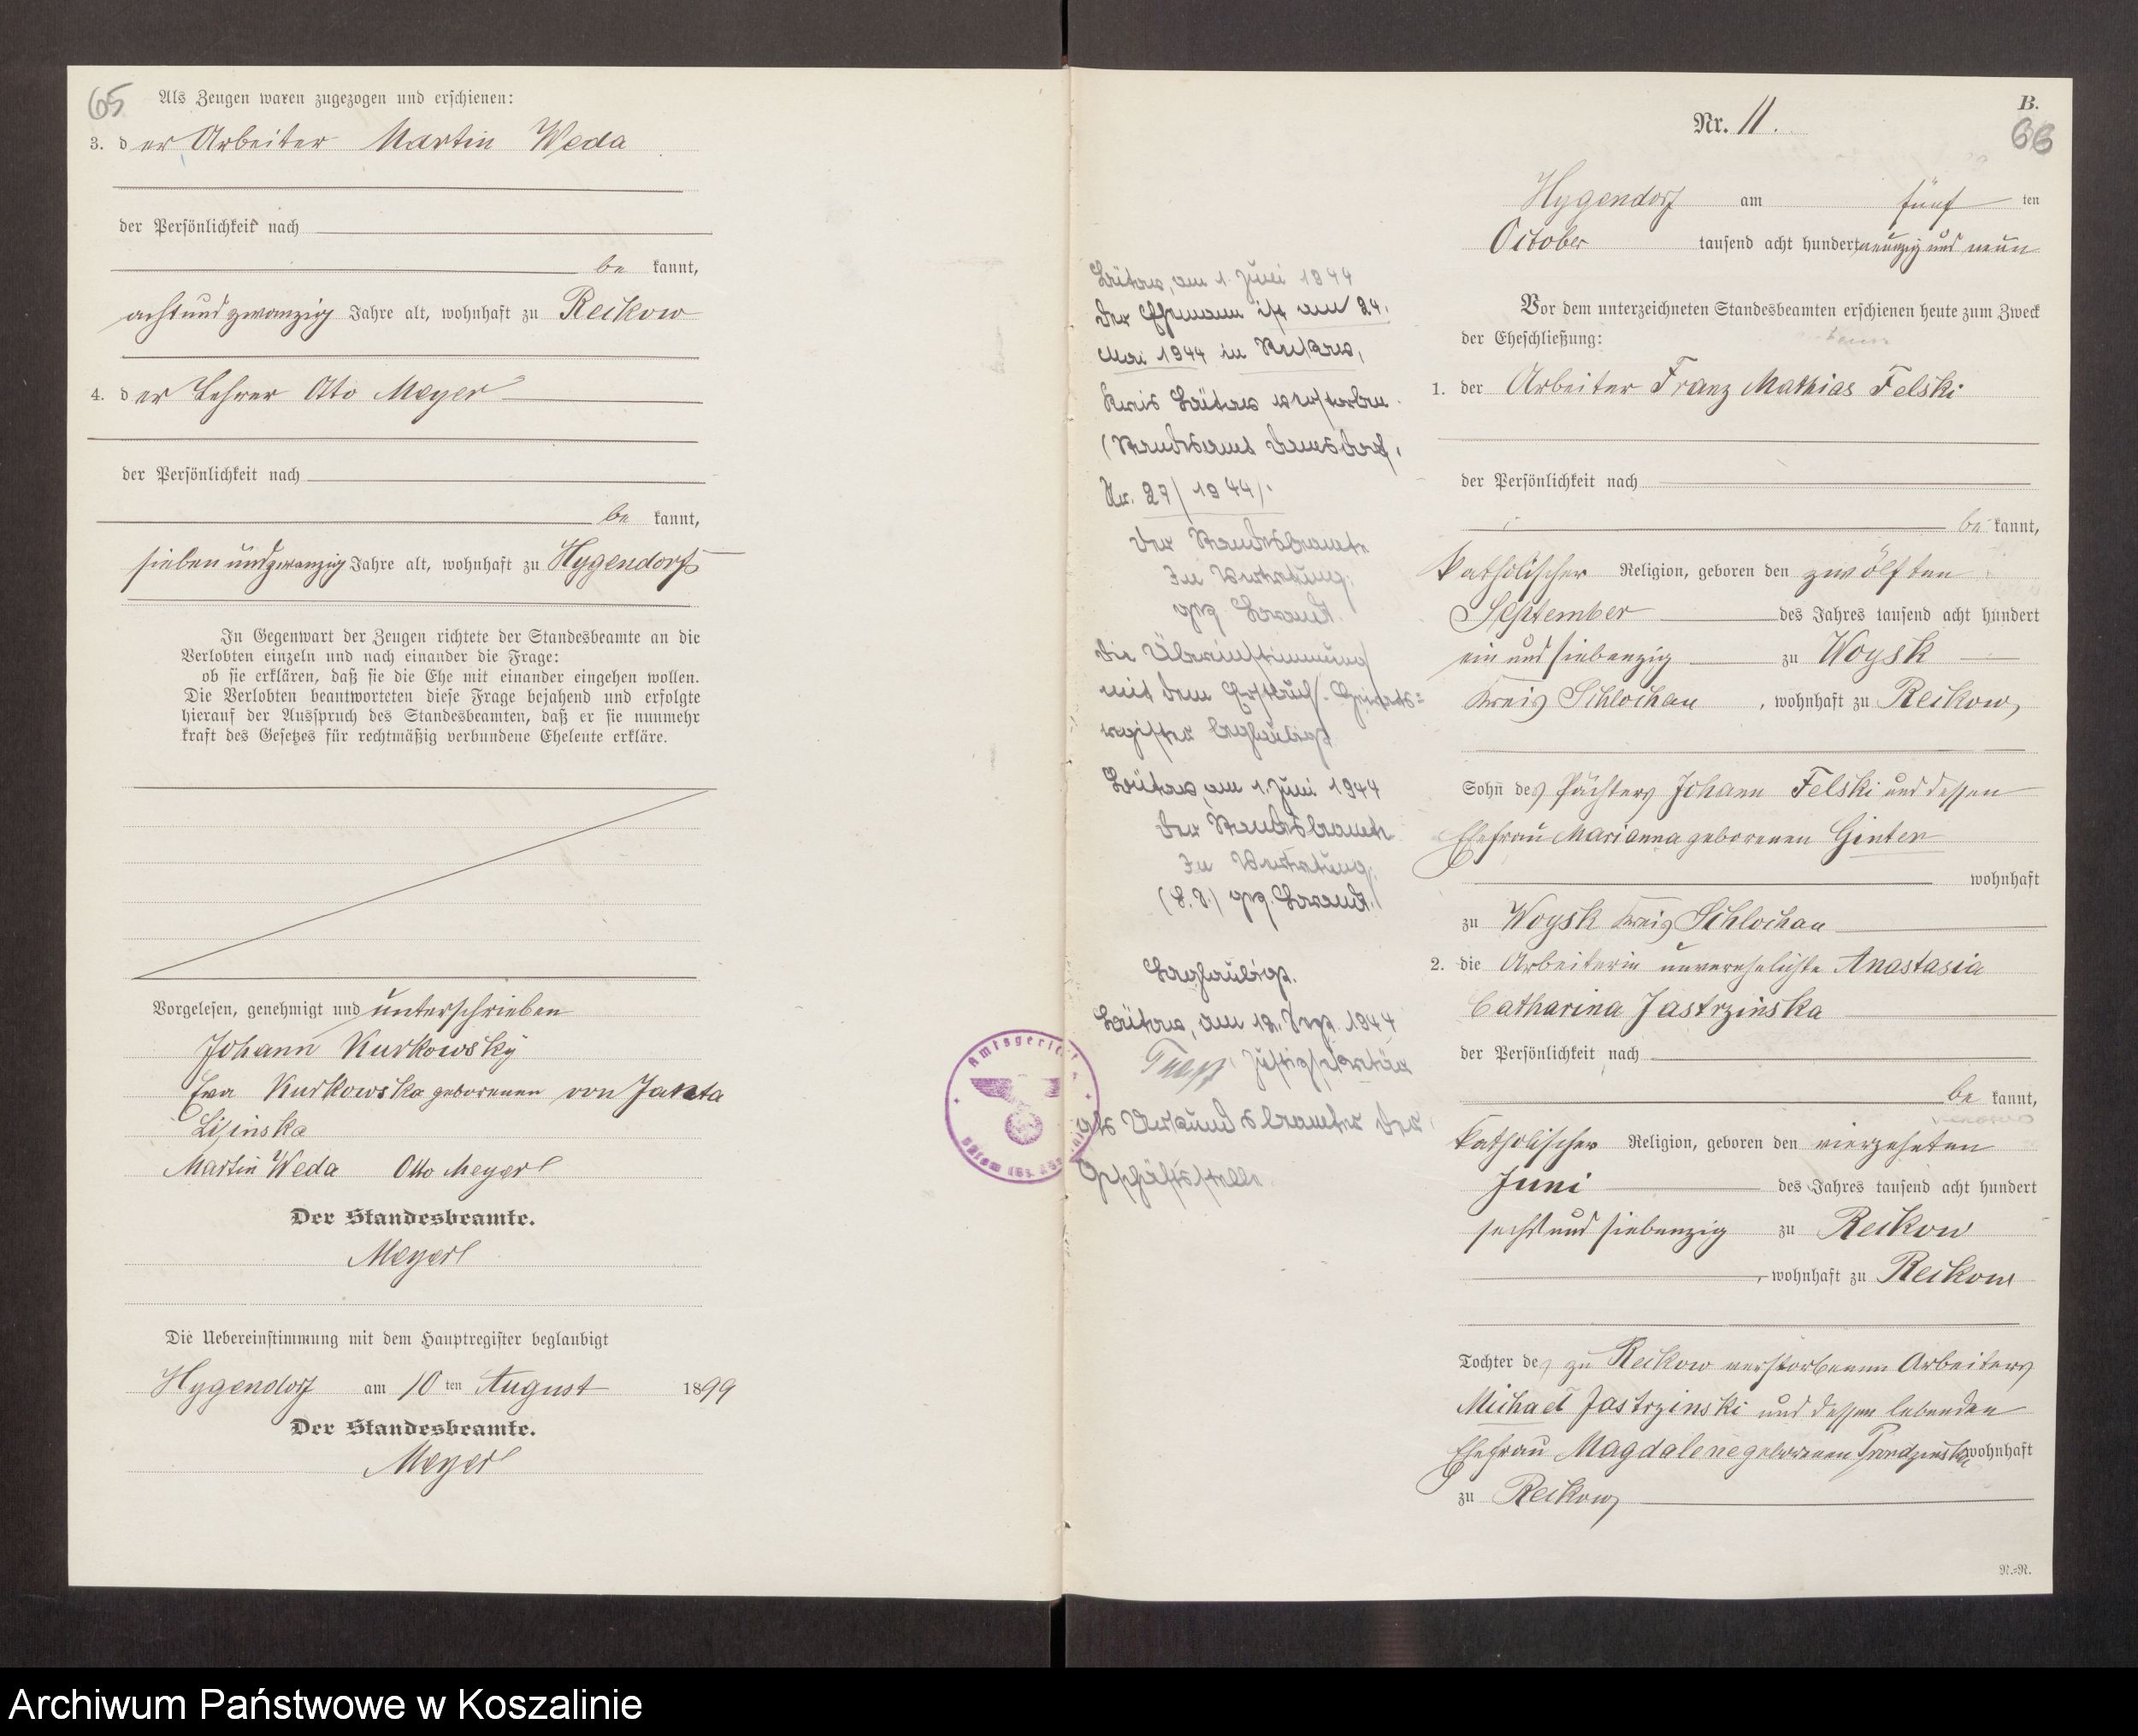 65
Als Zeugen waren zugezogen und erschienen:
3. d er Arbeiter Martin Weda
der Persönlichkeit nach
be kannt,
acht und zwanzig Jahre alt, wohnhaft zu Reckow
4. d er Lehrer Otto Meyer
der Persönlichkeit nach
be kannt,
sieben und zwanzig Jahre alt, wohnhaft zu Hygendorf
In Gegenwart der Zeugen richtete der Standesbeamte an die
Verlobten einzeln und nach einander die Frage:
ob sie erklären, daß sie die Ehe mit einander eingehen wollen.
Die Verlobten beantworteten diese Frage bejahend und erfolgte
hierauf der Ausspruch des Standesbeamten, daß er sie nunmehr
kraft des Gesetzes für rechtmäßig verbundene Eheleute erkläre.
Vorgelesen, genehmigt und unterschrieben
Johann Kurkowsky
Eva Kurkowska geborenen von Jakta
Lisinska
Martin Weda Otto Meyer
Der Standesbeamte.
Meyer
Die Uebereinstimmung mit dem Hauptregister beglaubigt
Hygendorf am 10 ten August 1899
Der Standesbeamte.
Meyer
Bütow, am 1. Juni 1944
Der Ehemann ist am 24.
Mai 1944 in Reckow,
Kreis Bütow verstorben
(Standesamt Damsdorf,
Nr. 27/1944).
Der Standesbeamte
In Vertretung:
gez.
Die Übereinstimmung
mit dem Erstbuch. Heirats-
register beglaubigt
Bütow, am 1. Juni 1944
Der Standesbeamte
In Vertretung:
(L.S.) gez.
Beglaubigt.
Bütow, am 12. Sep. 1944
Justizsekretär
als Urkundsbeamter der
Geschäftsstelle.
Amtsgericht
B.
Nr. 11.
66
Hygendorf am fünf ten
October tausend acht hundert neunzig und neun
Vor dem unterzeichneten Standesbeamten erschienen heute zum Zweck
der Eheschließung:
1. der Arbeiter Franz Mathias Felski
der Persönlichkeit nach
be kannt,
katholischer Religion, geboren den zwölften
September des Jahres tausend acht hundert
ein und siebenzig zu Woysk
Kreis Schlochau, wohnhaft zu Reckow,
Sohn des Pächters Johann Felski und dessen
Ehefrau Marianna geborenen Ginter
wohnhaft
zu Woysk Kreis Schlochau
2. die Arbeiterin unverehelichte Anastasia
Catharina Jastrzinska
der Persönlichkeit nach
be kannt,
katholischer Religion, geboren den vierzehnten
Juni des Jahres tausend acht hundert
sechs und siebenzig zu Reckow
, wohnhaft zu Reckow
Tochter des zu Reckow verstorbenen Arbeiters
Michael Jastrzinski und dessen lebenden
Ehefrau Magdalene geborenen wohnhaft
zu Reckow,
N.=N.
Archiwum Państwowe w Koszalinie